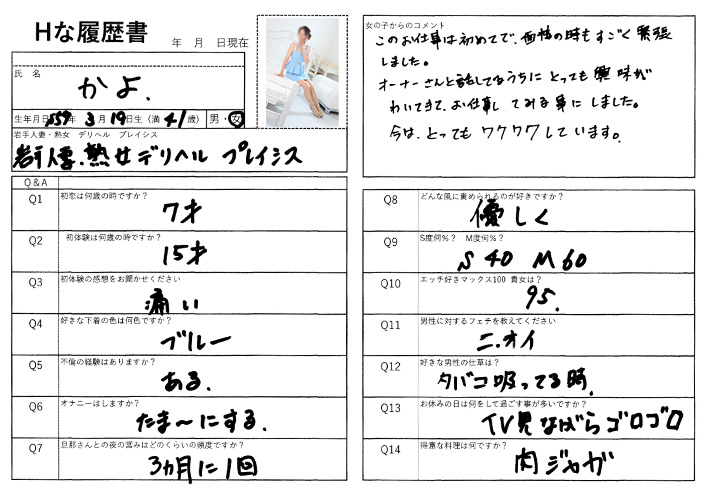 Hな履歴書
年 月 日現在
氏 名
かよ.
生年月日 S59 年 3 月 19 日生 (満 41 歳) 男・女
岩手人妻・熟女 デリヘル プレイシス
岩手人妻.熟女デリヘル プレイシス
Q&A
Q1 初恋は何歳の時ですか?
7才
Q2 初体験は何歳の時ですか?
15才
Q3 初体験の感想をお聞かせください
痛い
Q4 好きな下着の色は何色ですか?
ブルー
Q5 不倫の経験はありますか?
ある.
Q6 オナニーはしますか?
たま〜にする.
Q7 旦那さんとの夜の営みはどのくらいの頻度ですか?
3ヵ月に1回
女の子からのコメント
このお仕事は初めてで、面接の時もすごく緊張
しました。
オーナーさんと話してるうちに とっても興味が
わいてきて、お仕事してみる事にしました。
今は、とっても ワクワクしています。
Q8 どんな風に責められるのが好きですか?
優しく
Q9 S度何%? M度何%?
S 40 M 60
Q10 エッチ好きマックス100 貴女は?
95.
Q11 男性に対するフェチを教えてください
ニ.オイ
Q12 好きな男性の仕草は?
タバコ吸ってる時.
Q13 お休みの日は何をして過ごす事が多いですか?
TV見ながらゴロゴロ
Q14 得意な料理は何ですか?
肉ジャガ